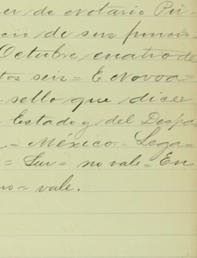 er de notario Pú-
cio de sus funcio-
Octubre, cuatro de
tos seis = E Novoa =
sello que dice=
Estado y del Despa
= México - Lega-
= Sur = no vale = En
no = vale.